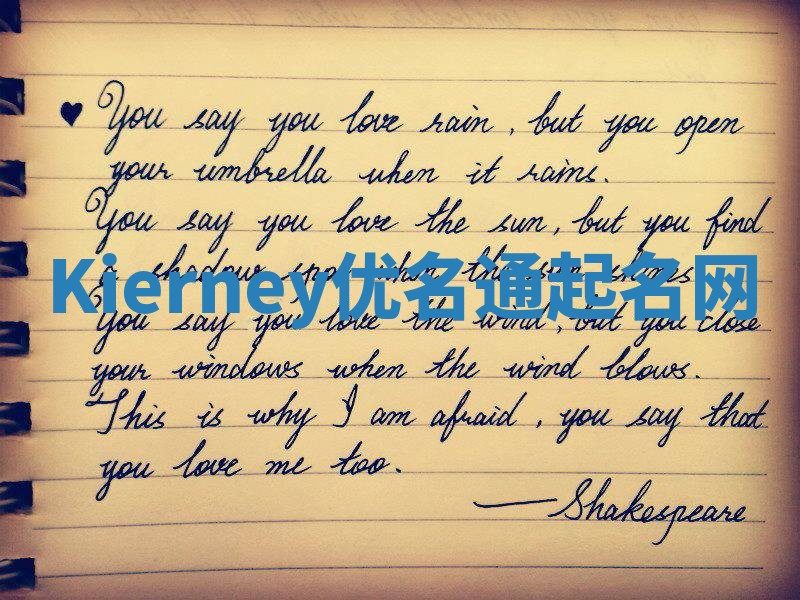 ♥ You say you love rain, but you open
your umbrella when it rains.
You say you love the sun, but you find
a shadow spot when the sun shines
Kierney优名通起名网
You say you love the wind, but you close
your windows when the wind blows.
This is why I am afraid, you say that
you love me too.
— Shakespeare